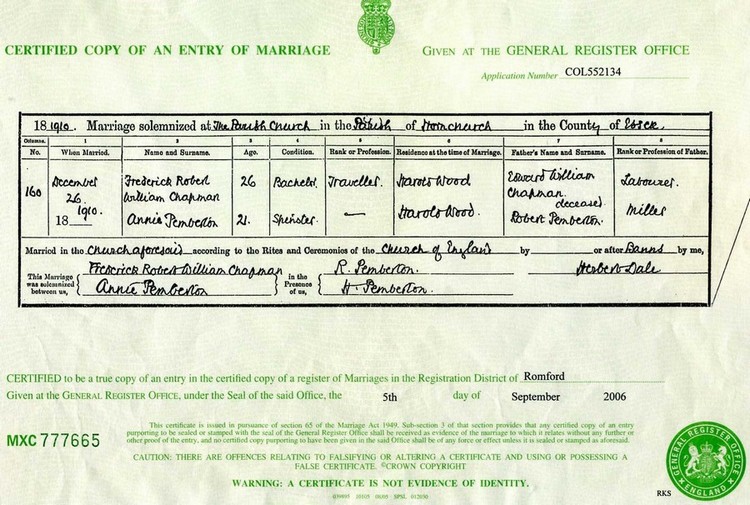 CERTIFIED COPY OF AN ENTRY OF MARRIAGE
GIVEN AT THE GENERAL REGISTER OFFICE
Application Number COL552134
18 1910. Marriage solemnized at The Parish Church in the Parish of Hornchurch in the County of Essex.
Columns. 1 2 3 4 5 6 7 8
No. When Married. Name and Surname. Age. Condition. Rank or Profession. Residence at the time of Marriage. Father's Name and Surname. Rank or Profession of Father.
160 December 26. 1910. 18
Frederick Robert William Chapman 26 Bachelor Traveller. Harold Wood Edward William Chapman deceased Labourer.
Annie Pemberton 21. Spinster — Harold Wood. Robert Pemberton. Miller
Married in the Church aforesaid according to the Rites and Ceremonies of the Church of England by or after Banns by me,
This Marriage was solemnized between us,
Frederick Robert William Chapman
Annie Pemberton
in the Presence of us,
R. Pemberton.
H. Pemberton.
Herbert Dale
CERTIFIED to be a true copy of an entry in the certified copy of a register of Marriages in the Registration District of Romford
Given at the GENERAL REGISTER OFFICE, under the Seal of the said Office, the 5th day of September 2006
MXC 777665
This certificate is issued in pursuance of section 65 of the Marriage Act 1949. Sub-section 3 of that section provides that any certified copy of an entry
purporting to be sealed or stamped with the seal of the General Register Office shall be received as evidence of the marriage to which it relates without any further or
other proof of the entry, and no certified copy purporting to have been given in the said Office shall be of any force or effect unless it is sealed or stamped as aforesaid.
CAUTION: THERE ARE OFFENCES RELATING TO FALSIFYING OR ALTERING A CERTIFICATE AND USING OR POSSESSING A
FALSE CERTIFICATE. ©CROWN COPYRIGHT
WARNING: A CERTIFICATE IS NOT EVIDENCE OF IDENTITY.
GENERAL REGISTER OFFICE
ENGLAND
RKS